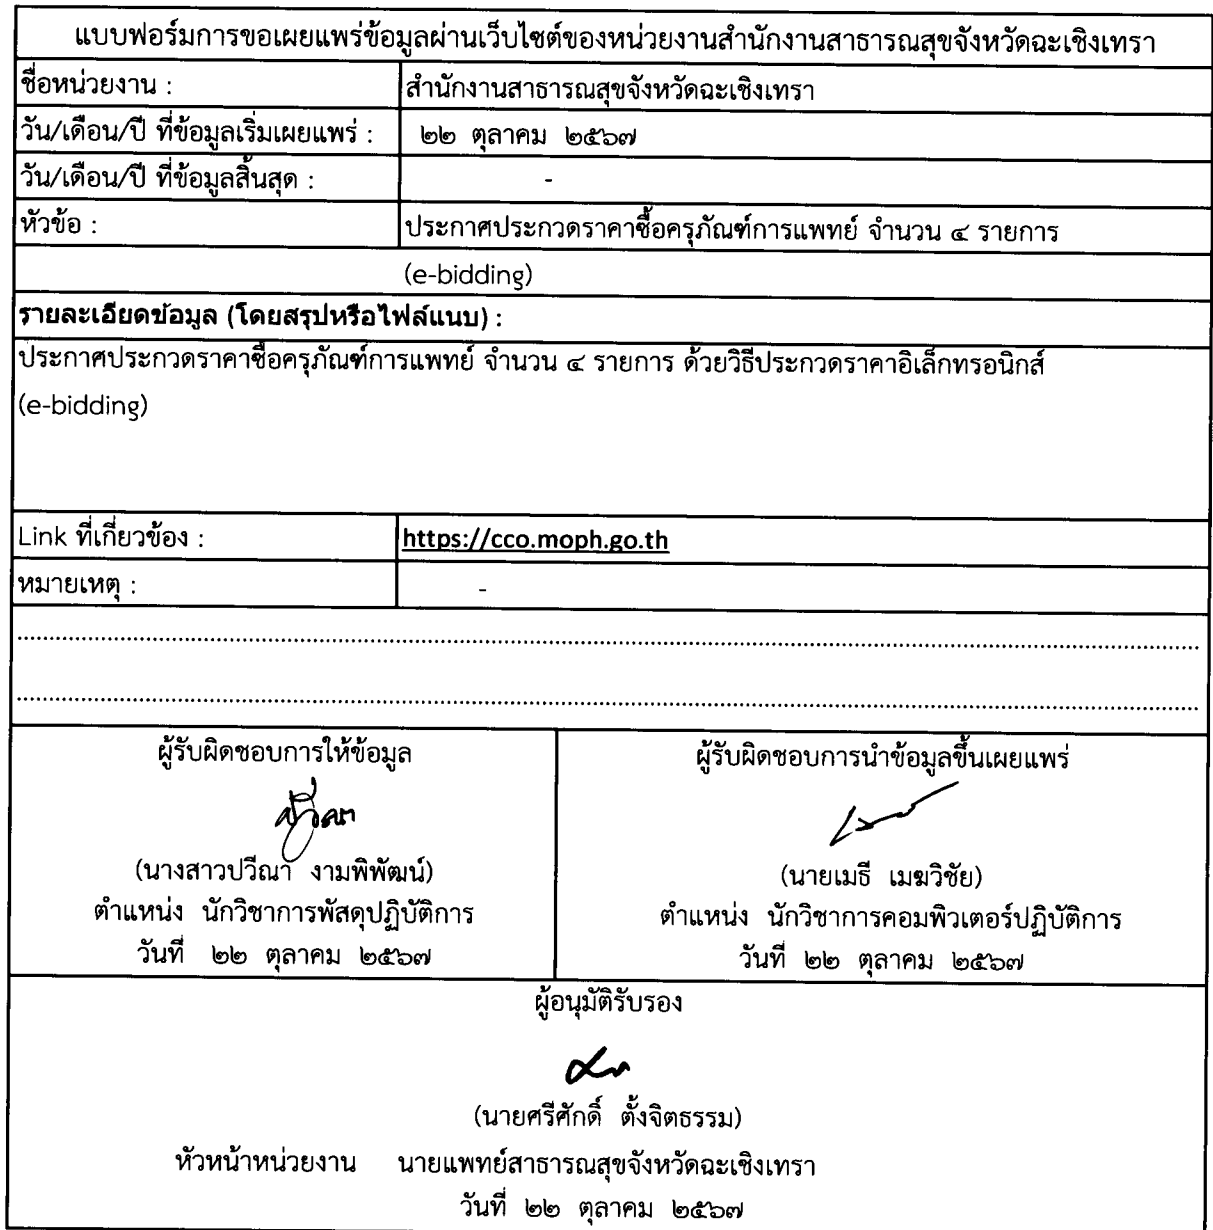 แบบฟอร์มการขอเผยแพร่ข้อมูลผ่านเว็บไซต์ของหน่วยงานสำนักงานสาธารณสุขจังหวัดฉะเชิงเทรา
ชื่อหน่วยงาน : สำนักงานสาธารณสุขจังหวัดฉะเชิงเทรา
วัน/เดือน/ปี ที่ข้อมูลเริ่มเผยแพร่ : ๒๒ ตุลาคม ๒๕๖๗
วัน/เดือน/ปี ที่ข้อมูลสิ้นสุด : -
หัวข้อ : ประกาศประกวดราคาซื้อครุภัณฑ์การแพทย์ จำนวน ๔ รายการ
(e-bidding)
รายละเอียดข้อมูล (โดยสรุปหรือไฟล์แนบ) :
ประกาศประกวดราคาซื้อครุภัณฑ์การแพทย์ จำนวน ๔ รายการ ด้วยวิธีประกวดราคาอิเล็กทรอนิกส์
(e-bidding)
Link ที่เกี่ยวข้อง : https://cco.moph.go.th
หมายเหตุ : -
ผู้รับผิดชอบการให้ข้อมูล
(นางสาวปวีณา งามพิพัฒน์)
ตำแหน่ง นักวิชาการพัสดุปฏิบัติการ
วันที่ ๒๒ ตุลาคม ๒๕๖๗
ผู้รับผิดชอบการนำข้อมูลขึ้นเผยแพร่
(นายเมธี เมฆวิชัย)
ตำแหน่ง นักวิชาการคอมพิวเตอร์ปฏิบัติการ
วันที่ ๒๒ ตุลาคม ๒๕๖๗
ผู้อนุมัติรับรอง
(นายศรีศักดิ์ ตั้งจิตธรรม)
หัวหน้าหน่วยงาน นายแพทย์สาธารณสุขจังหวัดฉะเชิงเทรา
วันที่ ๒๒ ตุลาคม ๒๕๖๗